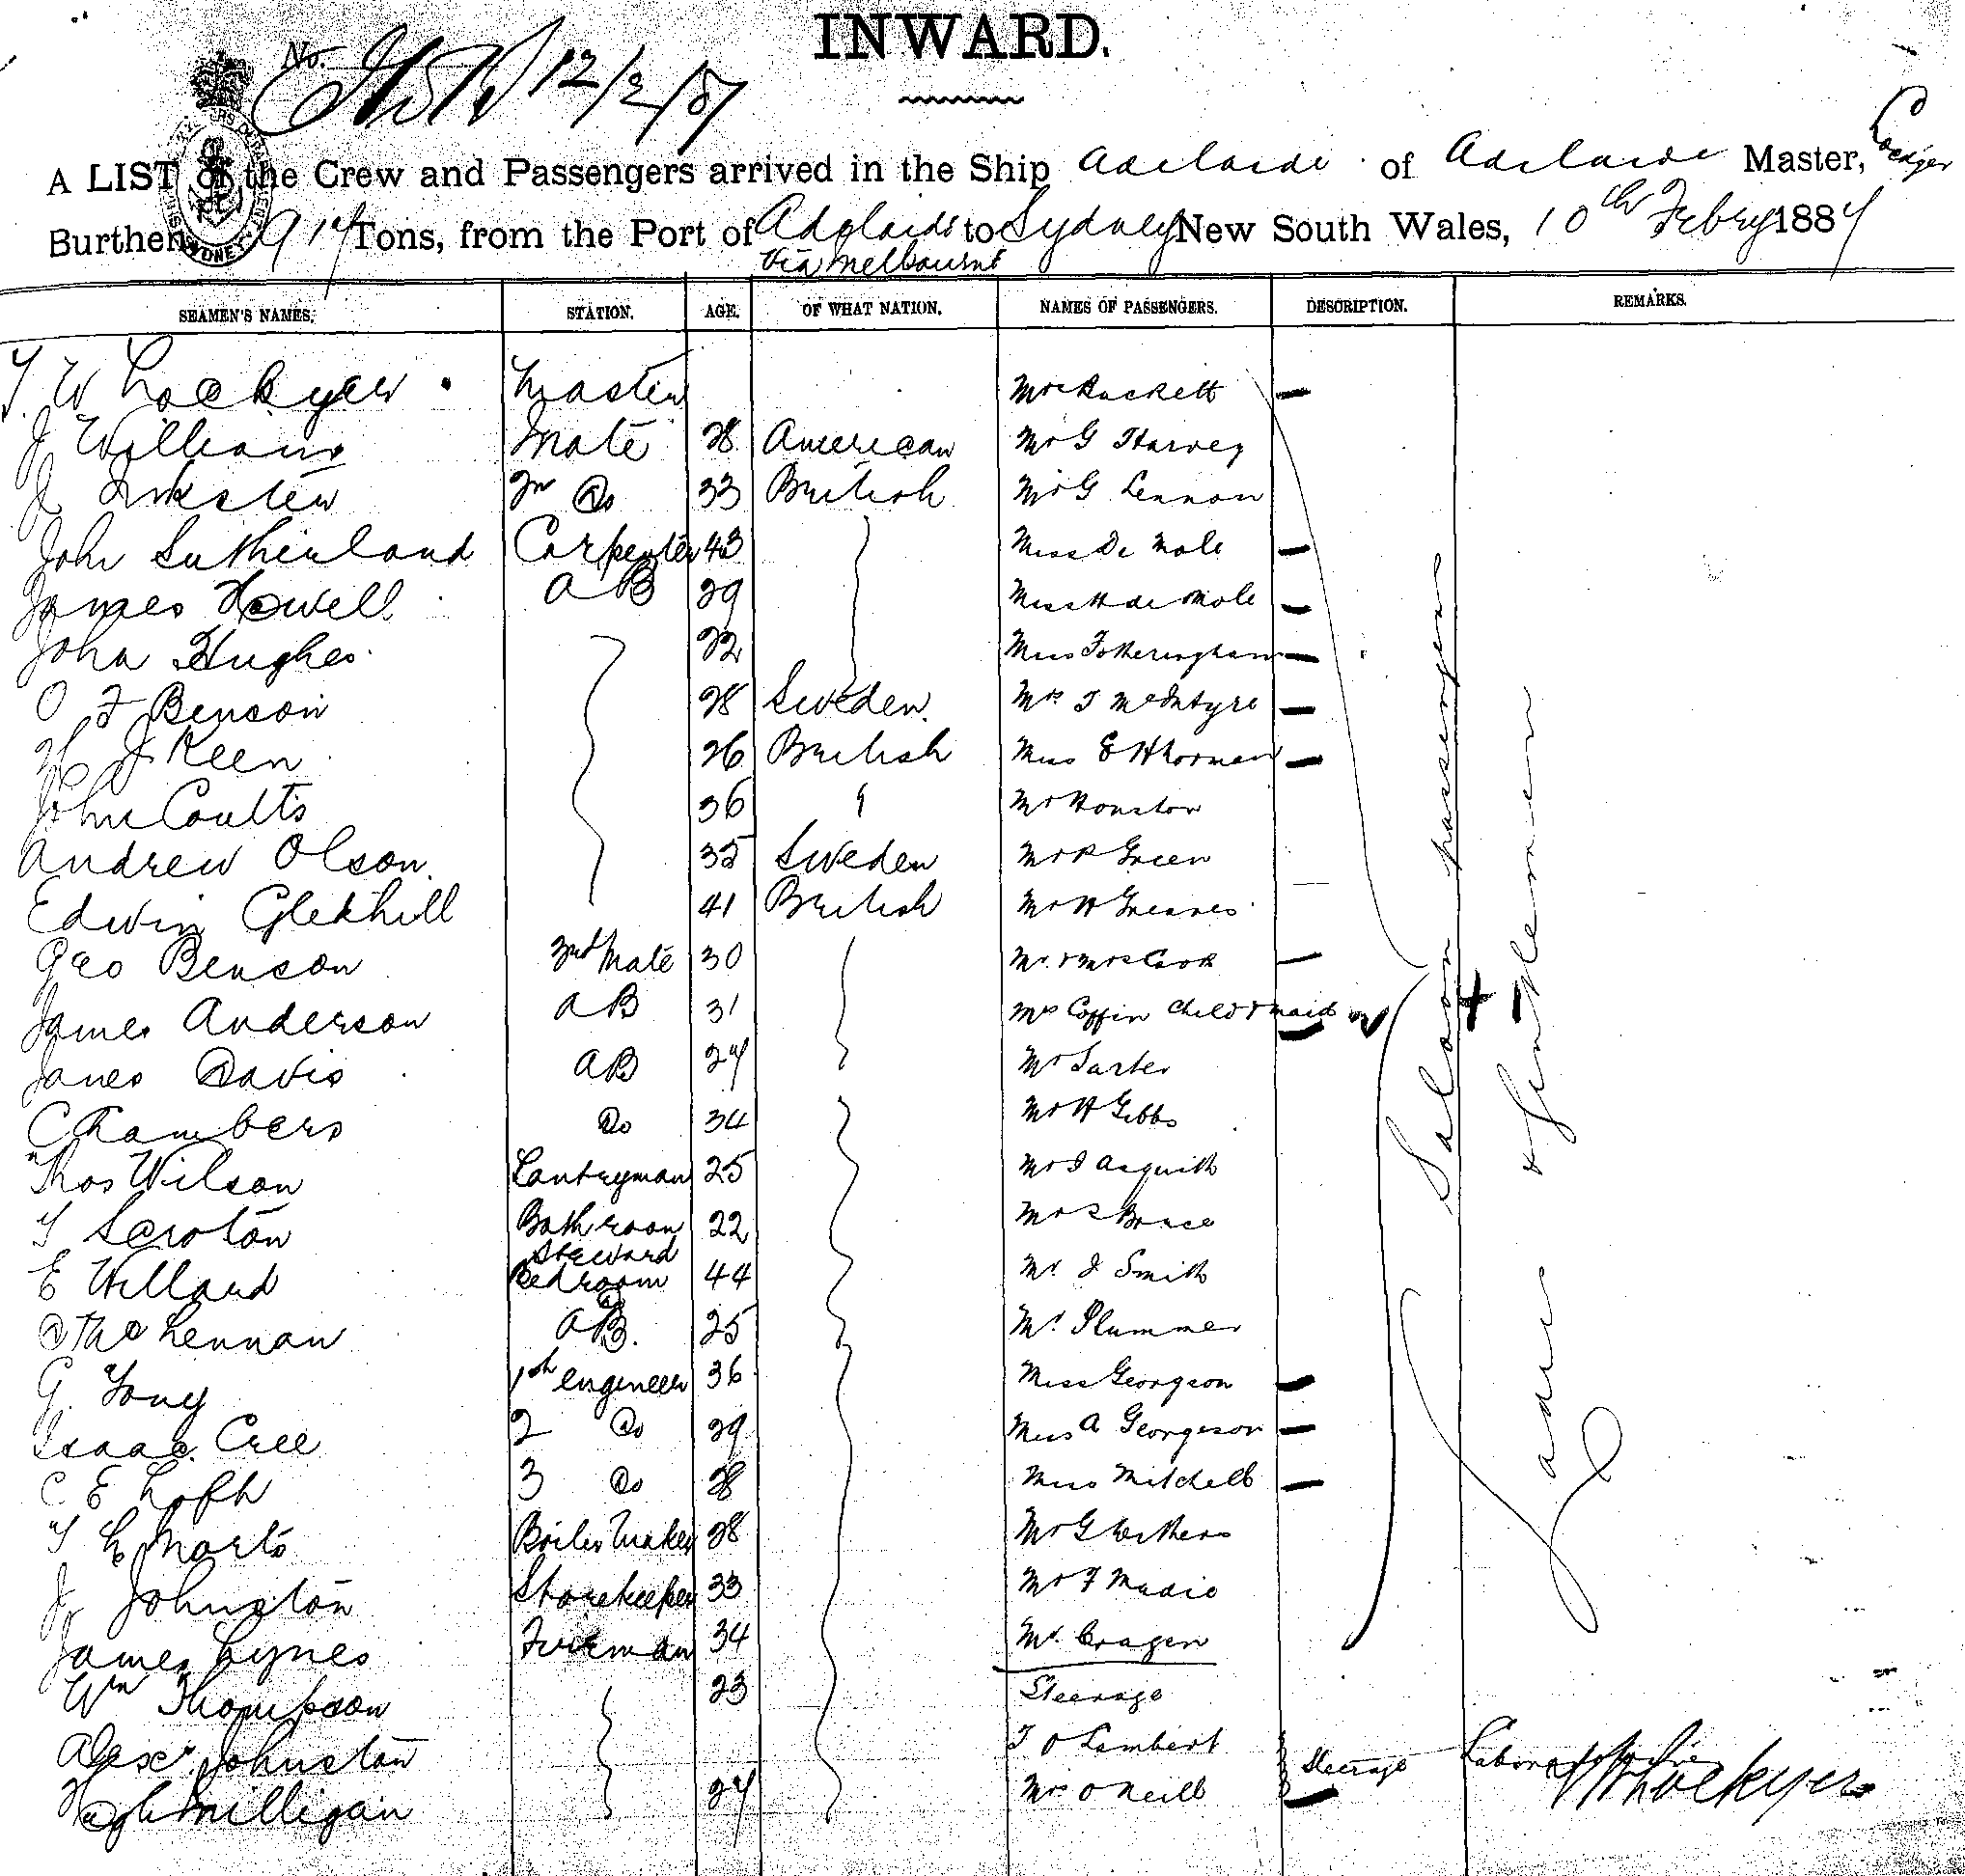 INWARD.
No. 12/2/87
A LIST of the Crew and Passengers arrived in the Ship Adelaide of Adelaide Master, Lockyer
Burthen 914 Tons, from the Port of Adelaide to Sydney New South Wales, 10th Febry 1887
via Melbourne
SEAMEN'S NAMES. STATION. AGE. OF WHAT NATION. NAMES OF PASSENGERS. DESCRIPTION. REMARKS.
T. W Lockyer Master Mrs Rackett
J Williams Mate 28 American Mr G Harvey
J Inkster 2n Do 33 British Mr G Lennon
John Sutherland Carpenter 43 Miss De Mole
James Howell AB 29 Miss H de Mole
John Hughes 22 Miss Fotheringham
O F Benson 28 Sweden Mrs T McIntyre
H J Keen 26 British Miss E
John Coutts 36 " Mr Houston
Andrew Olson 35 Sweden Mr R Green
Edwin Gledhill 41 British Mr H Greaves
Geo Benson 3rd Mate 30 Mr & Mrs Cook
James Anderson AB 31 Mrs Coffin Child & maid
James Davis AB 27 Mr
Chambers Do 34 Mr H Gibbs
Thos Wilson Pantryman 25 Mr J Asquith
T Scroton Bathroom Steward 22 Mr Brace
E Willard Bedroom Do 44 Mr J Smith
D McLennan AB. 25 Mr Plummer
G. Tong 1st engineer 36 Miss Georgeson
Isaac Cree 2 Do 29 Miss A Georgeson
C. E 3 Do 28 Miss Mitchell
T Boiler Maker 28 Mr G Withers
J Johnston Storekeeper 33 Mr F
James Lynes Fireman 34 Mr. Cragen
Wm Thompson 23 Steerage
Alexr Johnston T O Lambert Steerage
Hugh Milligan 27 Mrs O Neill
Saloon passengers
Ladies & Gentlemen
Lockyer